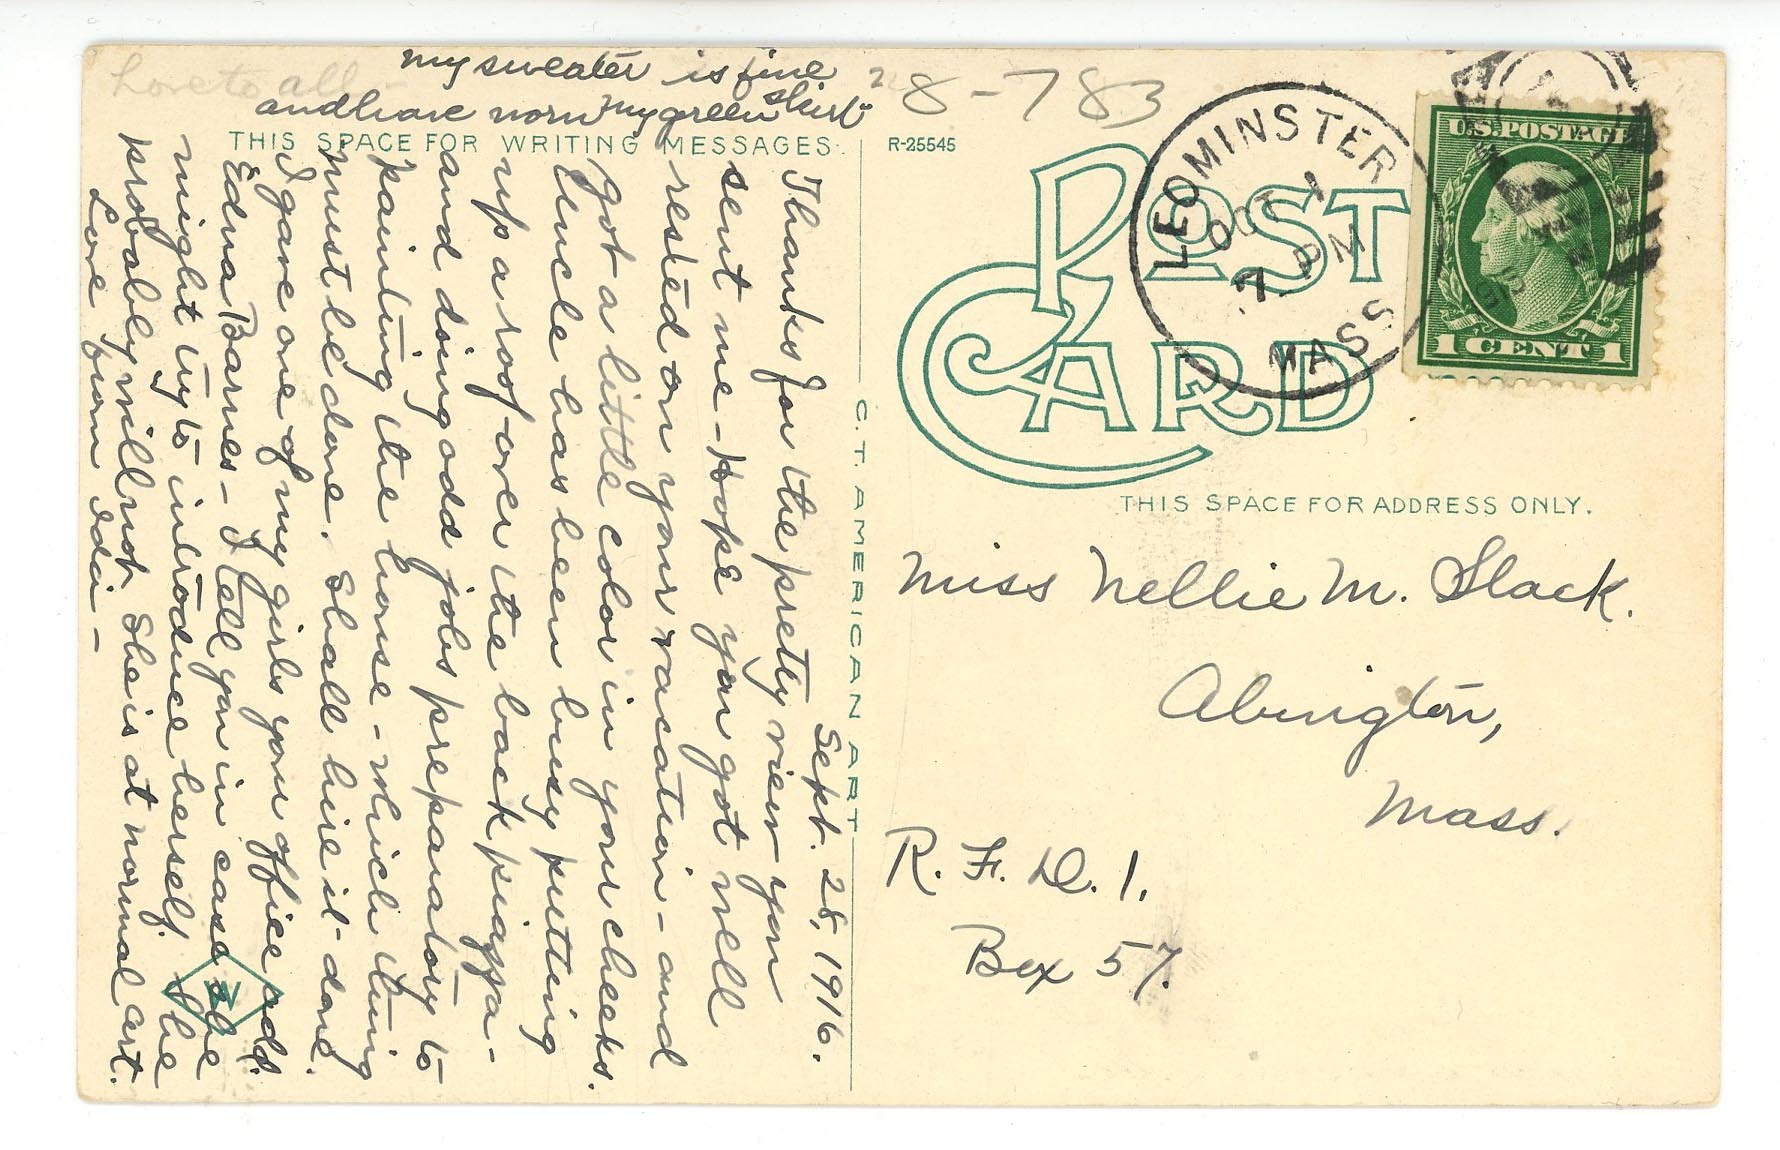 Love to all -
my sweater is fine
and have worn my green skirt
THIS SPACE FOR WRITING MESSAGES.
Sept. 28, 1916.
Thanks for the pretty view you
sent me - Hope you got well
rested on your vacation - and
got a little color in your cheeks.
Uncle has been busy putting
up a roof over the back piazza -
and doing odd jobs preparatory to
painting the house - which thing
must be done. Shall hire it done.
I gave one of my girls your office add.
Edna Barnes - I tell you in case she
might try to introduce herself. She
probably will not. She is at normal art.
Love from Ida -
W
C. T. AMERICAN ART
R-25545
28-783
POST
CARD
LEOMINSTER
OCT 1
7 PM
1916
MASS
U.S. POSTAGE
1 CENT 1
THIS SPACE FOR ADDRESS ONLY.
Miss Nellie M. Slack.
Abington,
Mass.
R. F. D. 1.
Box 57.